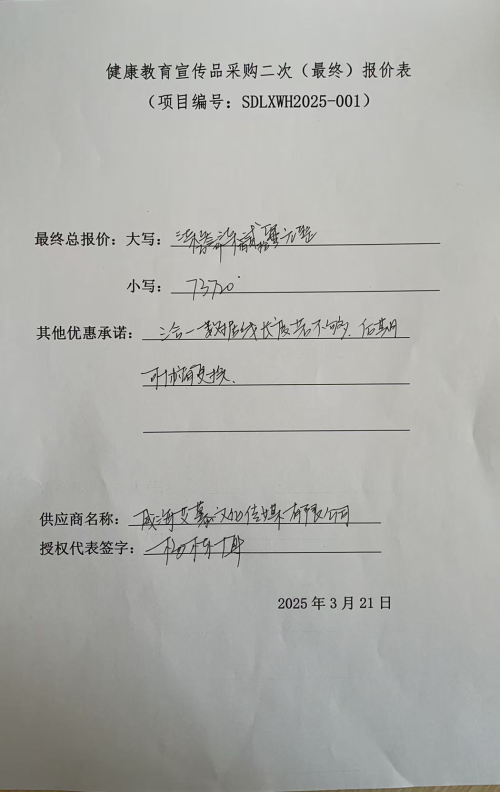 健康教育宣传品采购二次（最终）报价表
（项目编号：SDLXWH2025-001）
最终总报价：大写：柒万叁仟柒佰贰拾元整
小写：73720
其他优惠承诺：三合一数据线长度若不够，后期
可休更换．
供应商名称：威海艾文化传媒有限公司
授权代表签字：
2025年3月21日